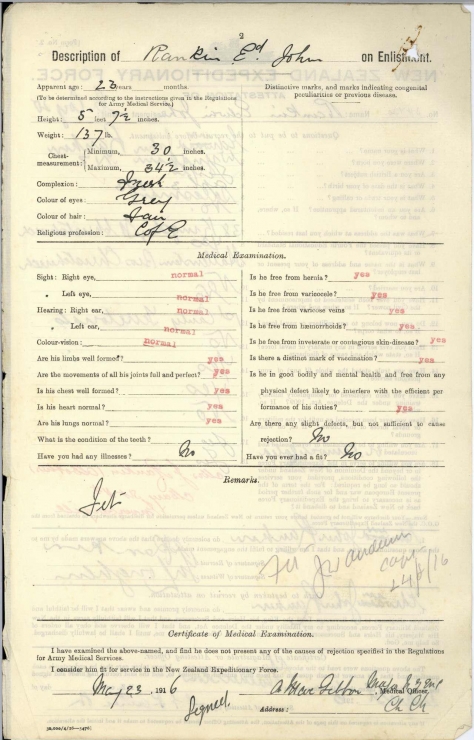 2
Description of Rankin Ed John on Enlistment.
Apparent age: 23 years months.
(To be determined according to the instructions given in the Regulations
for Army Medical Service.)
Distinctive marks, and marks indicating congenital
peculiarities or previous disease.
Height: 5 feet 7½ inches.
Weight: 137 lb.
Chest-measurement:
Minimum, 30 inches.
Maximum, 34½ inches.
Complexion: Fresh
Colour of eyes: Grey
Colour of hair: Fair
Religious profession: C of E
Medical Examination.
Sight: Right eye, normal
„ Left eye, normal
Hearing: Right ear, normal
„ Left ear, normal
Colour-vision: normal
Are his limbs well formed? yes
Are the movements of all his joints full and perfect? yes
Is his chest well formed? yes
Is his heart normal? yes
Are his lungs normal? yes
What is the condition of the teeth?
Have you had any illnesses? No
Is he free from hernia? yes
Is he free from varicocele? yes
Is he free from varicose veins yes
Is he free from hæmorrhoids? yes
Is he free from inveterate or contagious skin-disease? yes
Is there a distinct mark of vaccination? yes
Is he in good bodily and mental health and free from any
physical defect likely to interfere with the efficient per-
formance of his duties? yes
Are there any slight defects, but not sufficient to cause
rejection? No
Have you ever had a fit? No
Remarks.
Fit
Certificate of Medical Examination.
I have examined the above-named, and find he does not present any of the causes of rejection specified in the Regulations
for Army Medical Services.
I consider him fit for service in the New Zealand Expeditionary Force.
May 23, 1916
Signed
Major
Medical Officer.
Address: Ch Ch